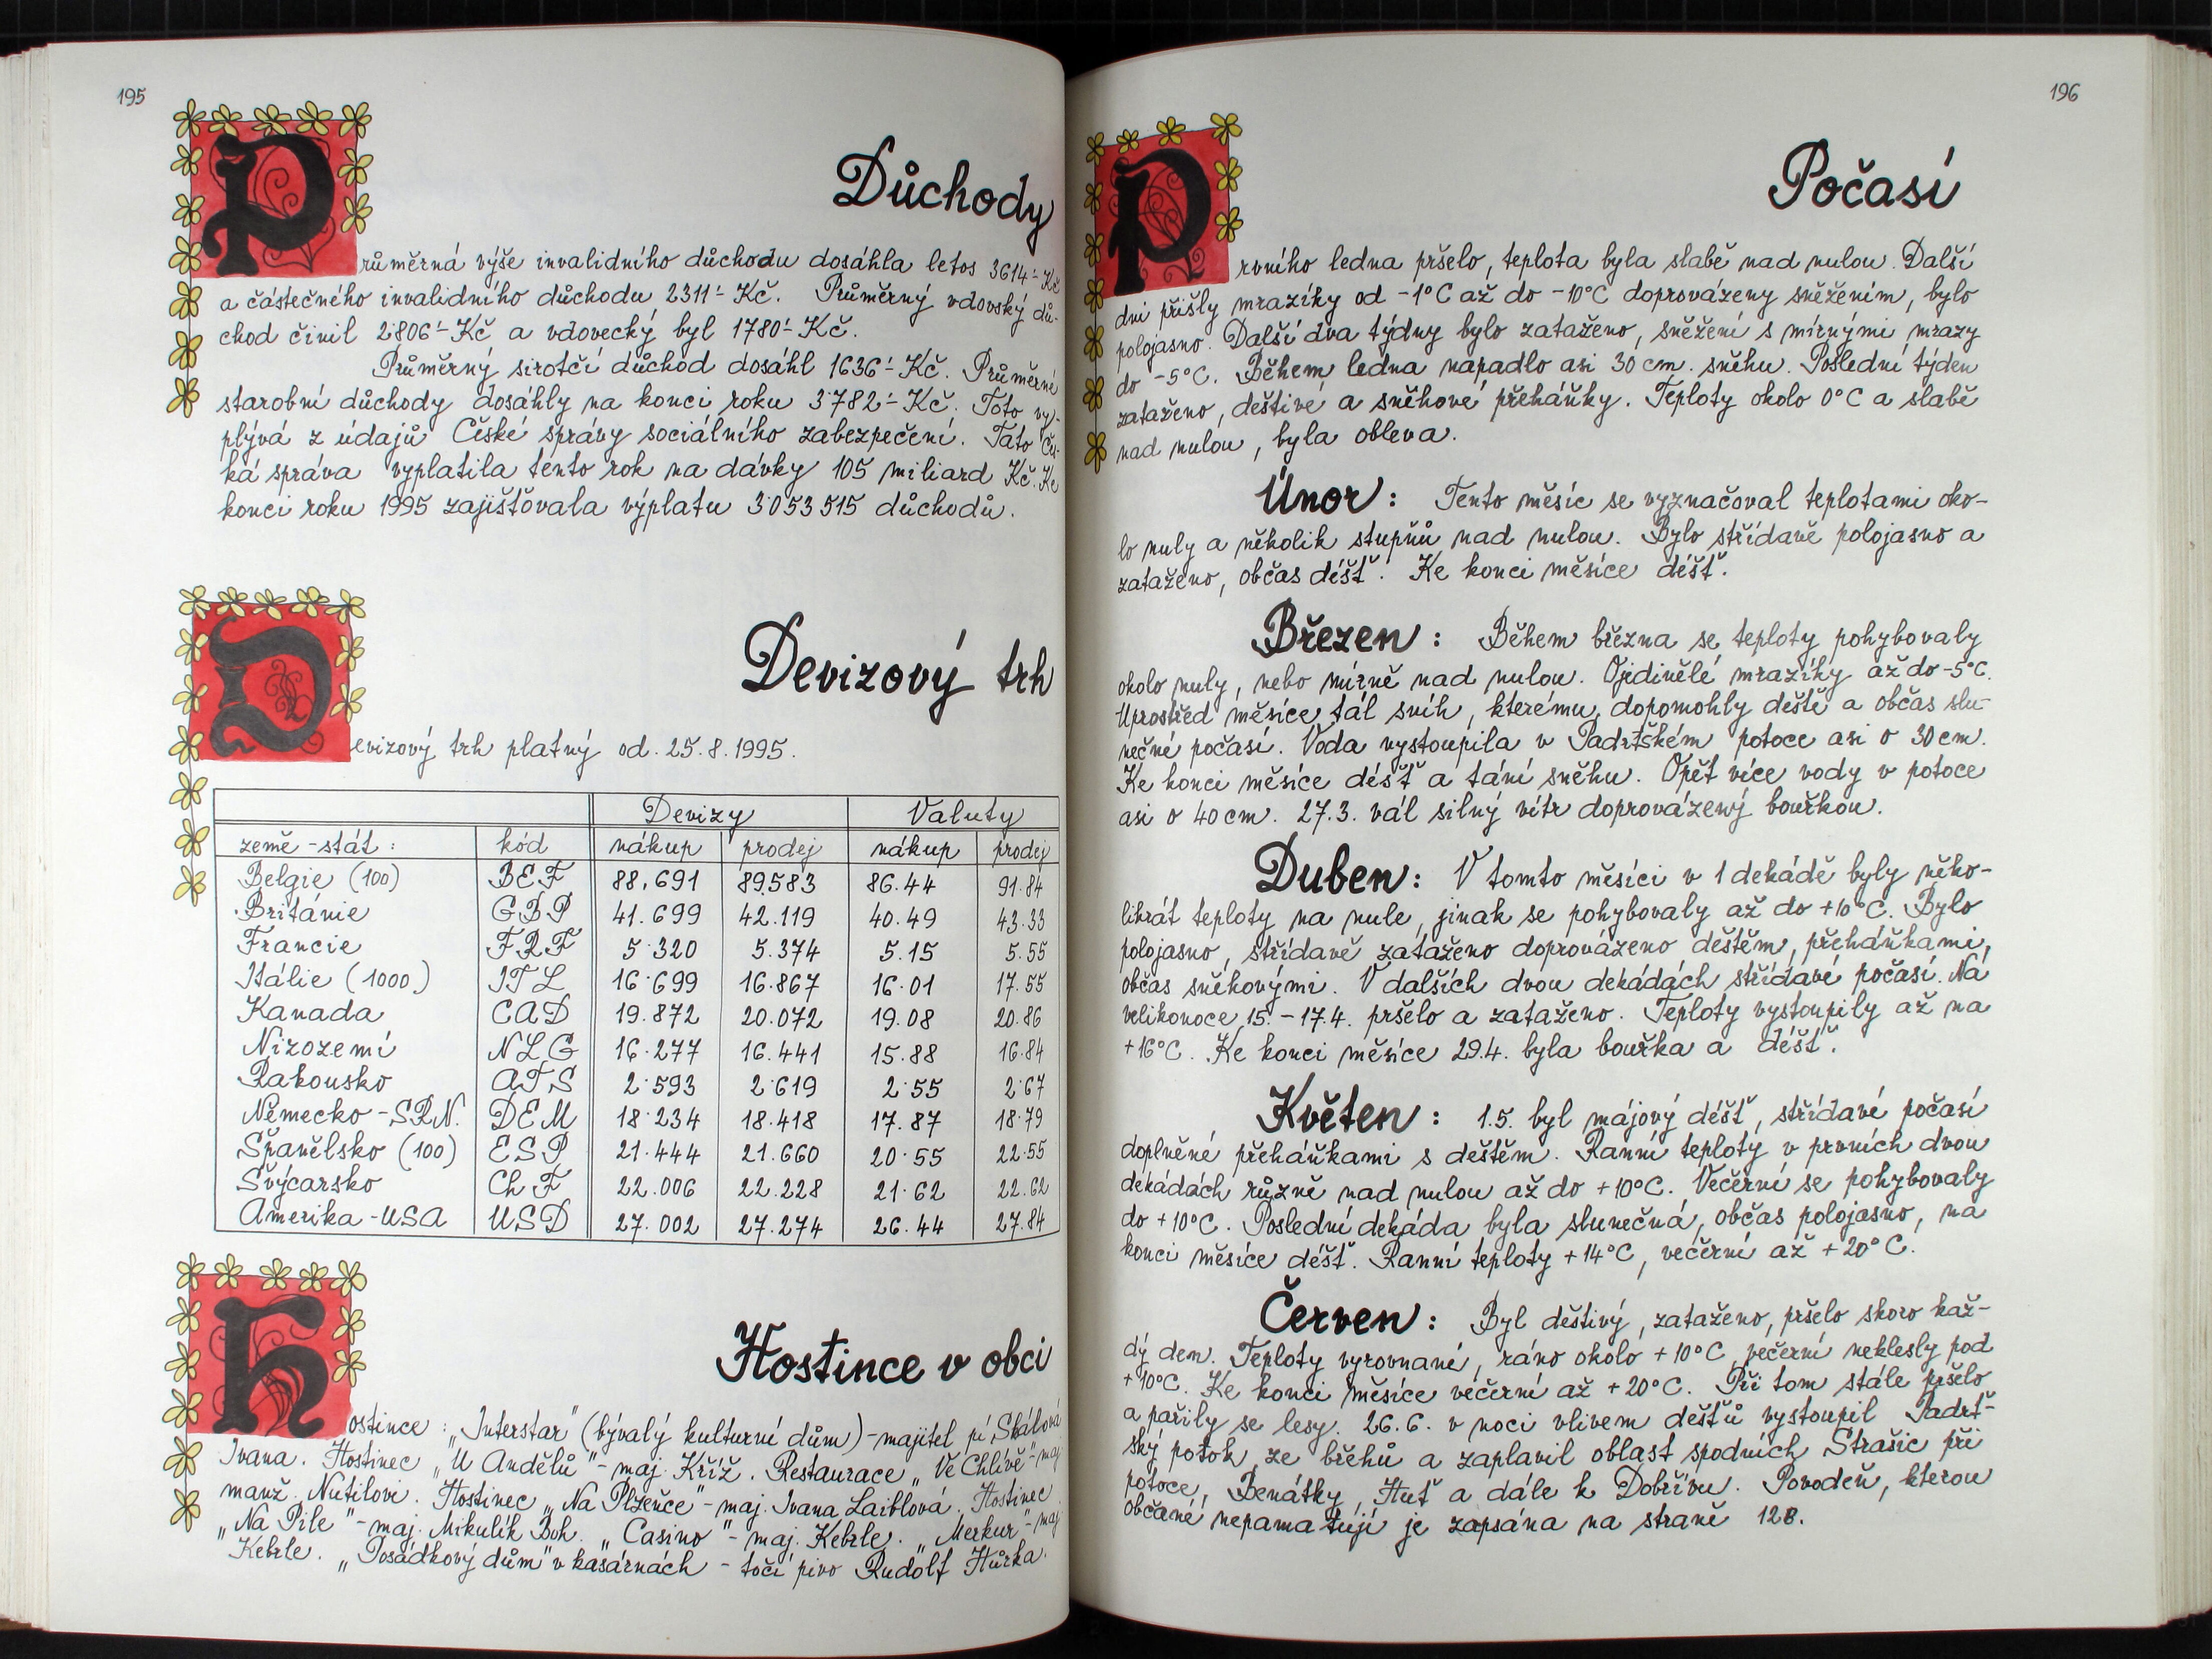 195
Důchody
Průměrná výše invalidního důchodu dosáhla letos 3614'- Kč
a částečného invalidního důchodu 2311'- Kč. Průměrný vdovský dů-
chod činil 2806'- Kč a vdovecký byl 1780'- Kč.
Průměrný sirotčí důchod dosáhl 1636'- Kč. Průměrné
starobní důchody dosáhly na konci roku 3782'- Kč. Toto vy-
plývá z údajů České správy sociálního zabezpečení. Tato čes-
ká správa vyplatila tento rok na dávky 105 miliard Kč. Ke
konci roku 1995 zajišťovala výplatu 3053515 důchodů.
Devizový trh
Devizový trh platný od. 25.8.1995.
Devizy Valuty
země-stát: kód nákup prodej nákup prodej
Belgie (100) BEF 88.691 89.583 86.44 91.84
Británie GBP 41.699 42.119 40.49 43.33
Francie FRF 5.320 5.374 5.15 5.55
Itálie (1000) ITL 16.699 16.867 16.01 17.55
Kanada CAD 19.872 20.072 19.08 20.86
Nizozemí NLG 16.277 16.441 15.88 16.84
Rakousko ATS 2.593 2.619 2.55 2.67
Německo-SRN. DEM 18.234 18.418 17.87 18.79
Španělsko (100) ESP 21.444 21.660 20.55 22.55
Švýcarsko ChF 22.006 22.228 21.62 22.62
Amerika-USA USD 27.002 27.274 26.44 27.84
Hostince v obci
Hostince: „Interstar" (bývalý kulturní dům)-majitel pí Skálová
Ivana. Hostinec „U Andělů"-maj. Kříž. Restaurace „Ve Chlívě"-maj
manž. Nutilovi. Hostinec „Na Plzeňce"-maj. Ivana Laiblová. Hostinec
„Na Pile"-maj. Mikulík Boh. „Casino"-maj. Kebrle. „Merkur"-maj
Kebrle. „Posádkový dům" v kasárnách - točí pivo Rudolf Hůrka.
196
Počasí
Prvního ledna pršelo, teplota byla slabě nad nulou. Další
dni přišly mrazíky od -1°C až do -10°C doprovázeny sněžením, bylo
polojasno. Další dva týdny bylo zataženo, sněžení s mírnými mrazy
do -5°C. Během ledna napadlo asi 30 cm. sněhu. Poslední týden
zataženo, deštivé a sněhové přeháňky. Teploty okolo 0°C a slabě
nad nulou, byla obleva.
Únor: Tento měsíc se vyznačoval teplotami oko-
lo nuly a několik stupňů nad nulou. Bylo střídavě polojasno a
zataženo, občas déšť. Ke konci měsíce déšť.
Březen: Během března se teploty pohybovaly
okolo nuly, nebo mírně nad nulou. Ojedinělé mrazíky až do -5°C.
Uprostřed měsíce tál sníh, kterému dopomohly deště a občas slu-
nečné počasí. Voda vystoupila v Padrťském potoce asi o 30 cm.
Ke konci měsíce déšť a tání sněhu. Opět více vody v potoce
asi o 40 cm. 27.3. vál silný vítr doprovázený bouřkou.
Duben: V tomto měsíci v 1 dekádě byly něko-
likrát teploty na nule, jinak se pohybovaly až do +10°C. Bylo
polojasno, střídavě zataženo doprovázeno deštěm, přeháňkami,
občas sněhovými. V dalších dvou dekádách střídavé počasí. Na
velikonoce 15.-17.4. pršelo a zataženo. Teploty vystoupily až na
+16°C. Ke konci měsíce 29.4. byla bouřka a déšť.
Květen: 1.5. byl májový déšť, střídavé počasí
doplněné přeháňkami s deštěm. Ranní teploty v prvních dvou
dekádách různě nad nulou až do +10°C. Večerní se pohybovaly
do +10°C. Poslední dekáda byla slunečná, občas polojasno, na
konci měsíce déšť. Ranní teploty +14°C, večerní až +20°C.
Červen: Byl deštivý, zataženo, pršelo skoro kaž-
dý den. Teploty vyrovnané, ráno okolo +10°C, večerní neklesly pod
+10°C. Ke konci měsíce večerní až +20°C. Při tom stále pršelo
a pařily se lesy. 26.6. v noci vlivem dešťů vystoupil Padrť-
ský potok ze břehů a zaplavil oblast spodních Strašic při
potoce, Benátky, Huť a dále k Dobřívu. Povodeň, kterou
občané nepamatují je zapsána na straně 128.